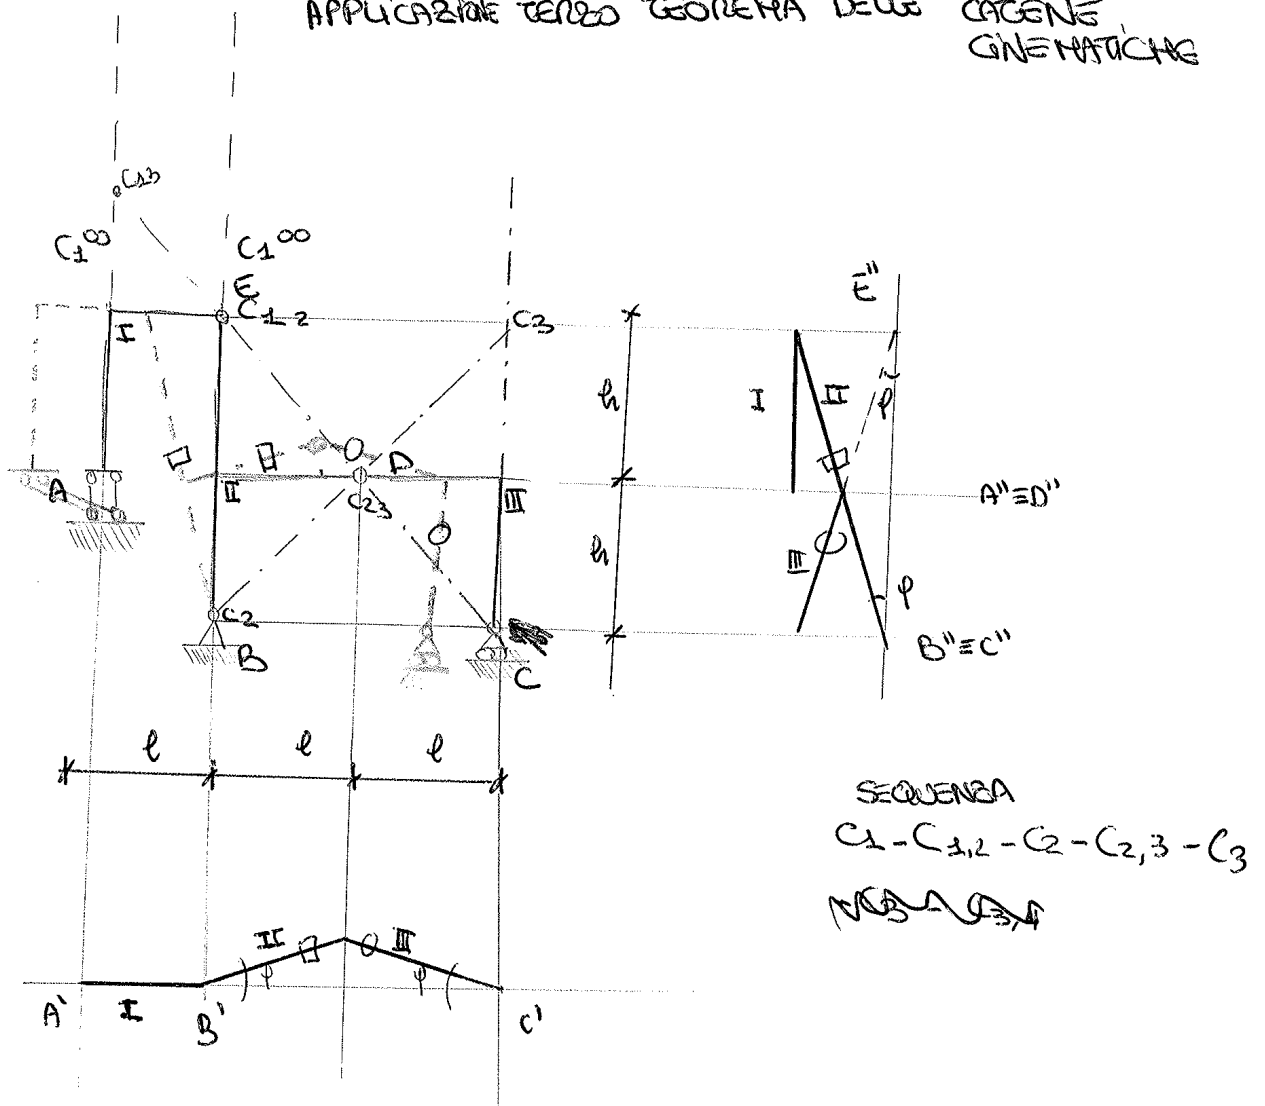 APPLICAZIONE TERZO TEOREMA DELLE CATENE
CINEMATICHE
C13
C1∞ C1∞
E
C1 2
C3
I
E"
h
I II
φ
D
A
II
C23
III
A"≡D"
h
III
φ
C2
B
C
B"≡C"
l l l
SEQUENZA
C1 - C1,2 - C2 - C2,3 - C3
II III
φ φ
A' I B' C'